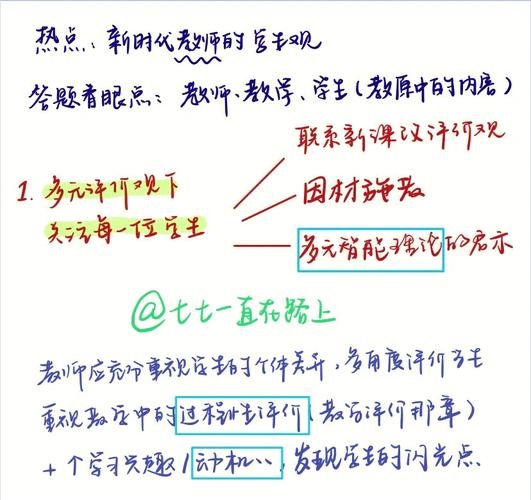 热点：新时代教师的学生观
答题着眼点：教师、教学、学生（教原中的内容）
联系新课改评价观
1. 多元评价观下
关注每一位学生
因材施教
多元智能理论的启示
@七七一直在路上
教师应充分重视学生的个体差异，多角度评价学生
重视教学中的过程性评价（教学评价那章）
+ 个学习兴趣/动机…，发现学生的闪光点